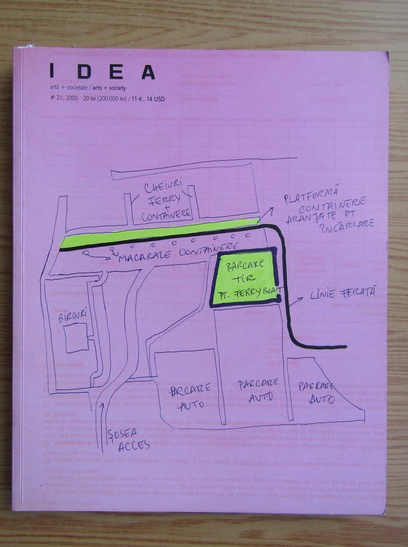 IDEA
artă + societate / arts + society
# 21, 2005 20 lei (200.000 lei) / 11 €, 14 USD
CHEIURI
FERRY
+
CONTAINERE
PLATFORMĂ
CONTAINERE
ARANJATE PT
ÎNCĂRCARE
MACARALE CONTAINERE
PARCARE
TIR
PT. FERRYBOAT
LINIE FERATĂ
BIROURI
PARCARE
AUTO
PARCARE
AUTO
PARCARE
AUTO
ȘOSEA
ACCES